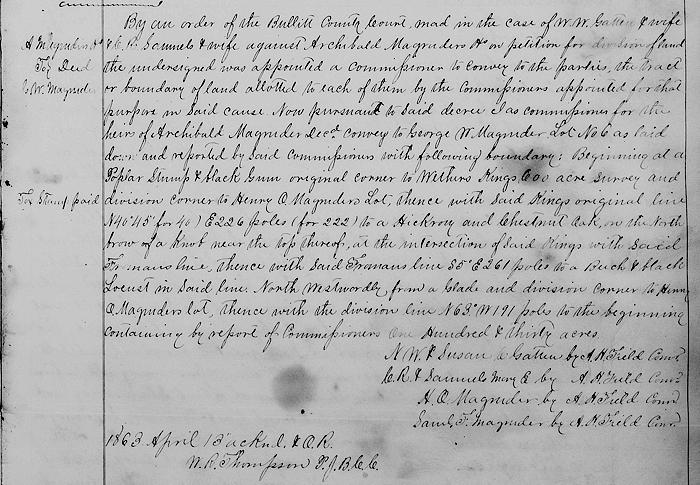 By an order of the Bullitt County Court, mad in the case of W. W. Gatten & wife
A Magruders Hs & C. R. Samuels & wife against Archibald Magruders Hs on petition for division of land
To} Deed the undersigned was appointed a Commissioner to convey to the parties, the tract
G W. Magruder or boundary of land allotted to each of them by the Commissioners appointed for that
purpose in Said cause. Now pursuant to said decree I as commissioner for the
heirs of Archibald Magruder Decd. convey to George W. Magruder Lot No 6 as laid
down and reported by Said Commissioners with following boundary: Beginning at a
Poplar Stump & black Gum original corner to Withers Kings 600 acre Survey and
Tax Stamp paid division corner to Henry O. Magruders Lot, thence with Said Kings original line
N40°45' for 40) E226 poles (for 222) to a Hickory and Chestnut Oak, on the North
brow of a knob near the top thereof, at the intersection of Said Kings with Said
Fromans line, thence with Said Fromans line S5°E261 poles to a Beech & black
Locust in Said line. North Westwordly, from a Glade and division corner to Henry
O. Magruders lot, thence with the division line N63°W191 poles to the beginning
Containing by report of Commissioners One Hundred & thirty acres.
N W & Susan C Gatten by A. H. Field Comr
C. R. & Samuels Mary E by A. H. Field Comr
H. O. Magruder by A. H. Field Comr
Saml. F. Magruder by A. H. Field Comr
1863 April 13 acknd. & O. R.
W. R. Thompson P. J. B. C. C.